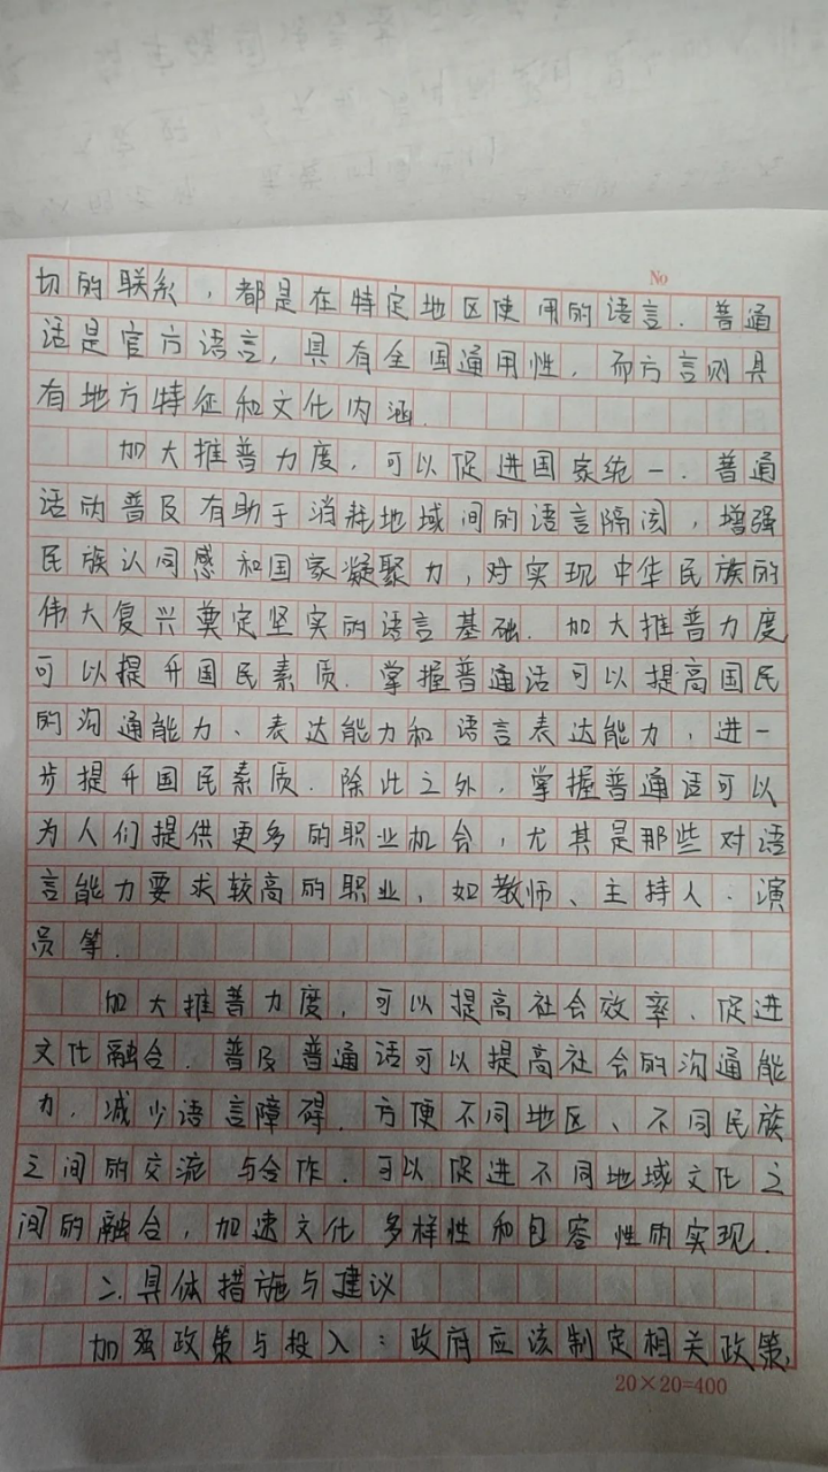 No
切的联系，都是在特定地区使用的语言．普通
话是官方语言，具有全国通用性，而方言则具
有地方特征和文化内涵．
加大推普力度，可以促进国家统一．普通
话的普及有助于消耗地域间的语言隔阂，增强
民族认同感和国家凝聚力，对实现中华民族的
伟大复兴奠定坚实的语言基础．加大推普力度
可以提升国民素质．掌握普通话可以提高国民
的沟通能力、表达能力和语言表达能力，进一
步提升国民素质．除此之外，掌握普通话可以
为人们提供更多的职业机会，尤其是那些对语
言能力要求较高的职业，如教师、主持人．演
员等．
加大推普力度，可以提高社会效率、促进
文化融合．普及普通话可以提高社会的沟通能
力，减少语言障碍．方便不同地区、不同民族
之间的交流与合作．可以促进不同地域文化之
间的融合，加速文化多样性和包容性的实现．
二．具体措施与建议
加强政策与投入：政府应该制定相关政策，
20×20=400